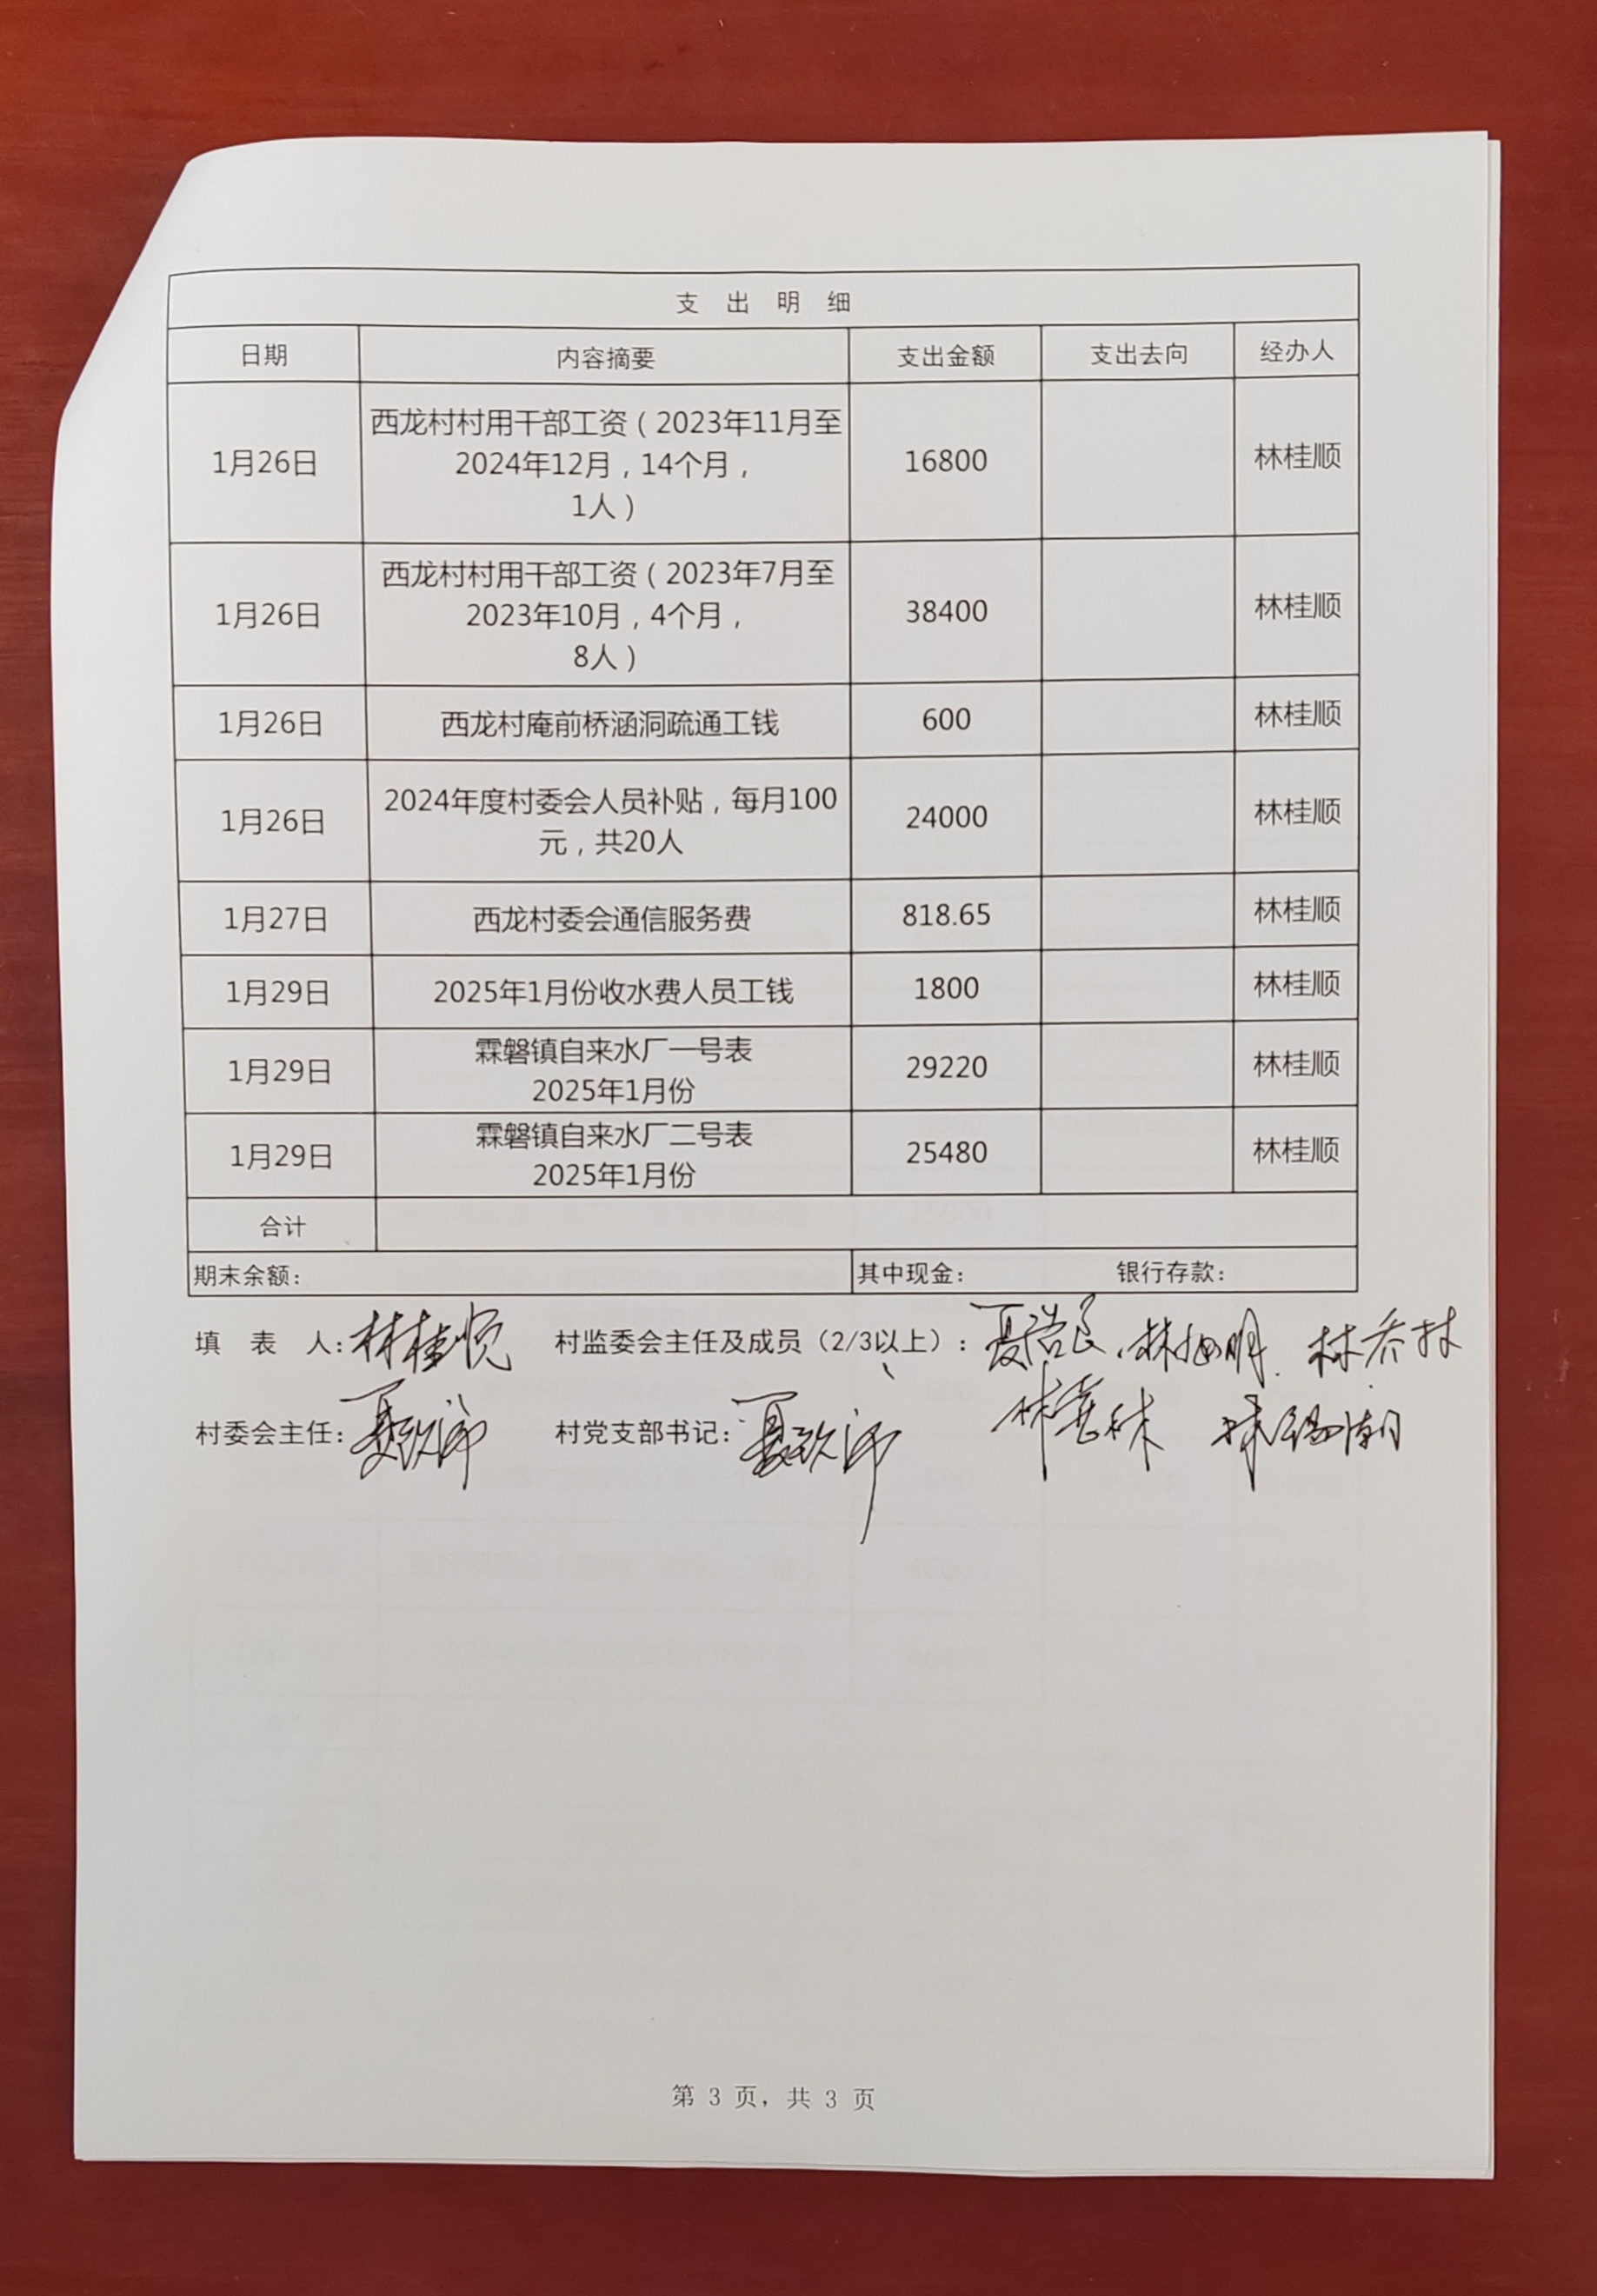 支 出 明 细
日期 内容摘要 支出金额 支出去向 经办人
1月26日 西龙村村用干部工资（2023年11月至 16800 林桂顺
2024年12月，14个月，
1人）
1月26日 西龙村村用干部工资（2023年7月至 38400 林桂顺
2023年10月，4个月，
8人）
1月26日 西龙村庵前桥涵洞疏通工钱 600 林桂顺
1月26日 2024年度村委会人员补贴，每月100 24000 林桂顺
元，共20人
1月27日 西龙村委会通信服务费 818.65 林桂顺
1月29日 2025年1月份收水费人员工钱 1800 林桂顺
1月29日 霖磐镇自来水厂一号表 29220 林桂顺
2025年1月份
1月29日 霖磐镇自来水厂二号表 25480 林桂顺
2025年1月份
合计
期末余额： 其中现金： 银行存款：
填 表 人：林桂顺 村监委会主任及成员（2/3以上）：
村委会主任： 村党支部书记：
第 3 页，共 3 页